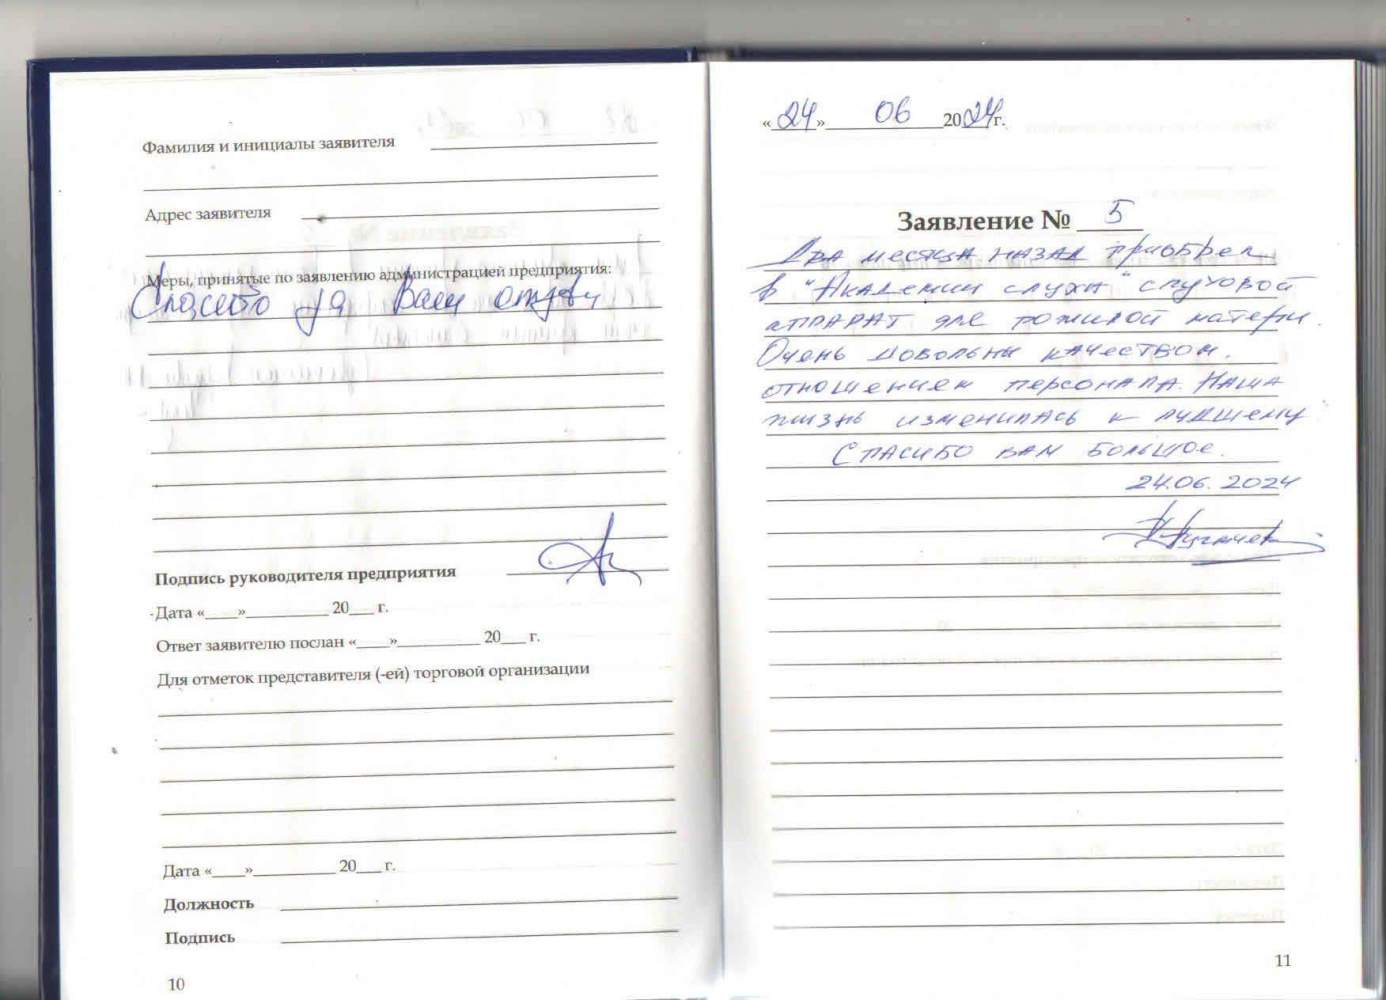 Фамилия и инициалы заявителя
Адрес заявителя
Меры, принятые по заявлению администрацией предприятия:
Спасибо за Ваш отзыв
Подпись руководителя предприятия
Дата «____»__________ 20___ г.
Ответ заявителю послан «____»__________ 20___ г.
Для отметок представителя (-ей) торговой организации
Дата «____»__________ 20___ г.
Должность
Подпись
10
«24» 06 2024г.
Заявление № 5
Два месяца назад приобрел
в "Академии слуха" слуховой
аппарат для пожилой матери.
Очень довольны качеством.
отношением персонала. Наша
жизнь изменилась к лучшему
Спасибо вам большое.
24.06.2024
11